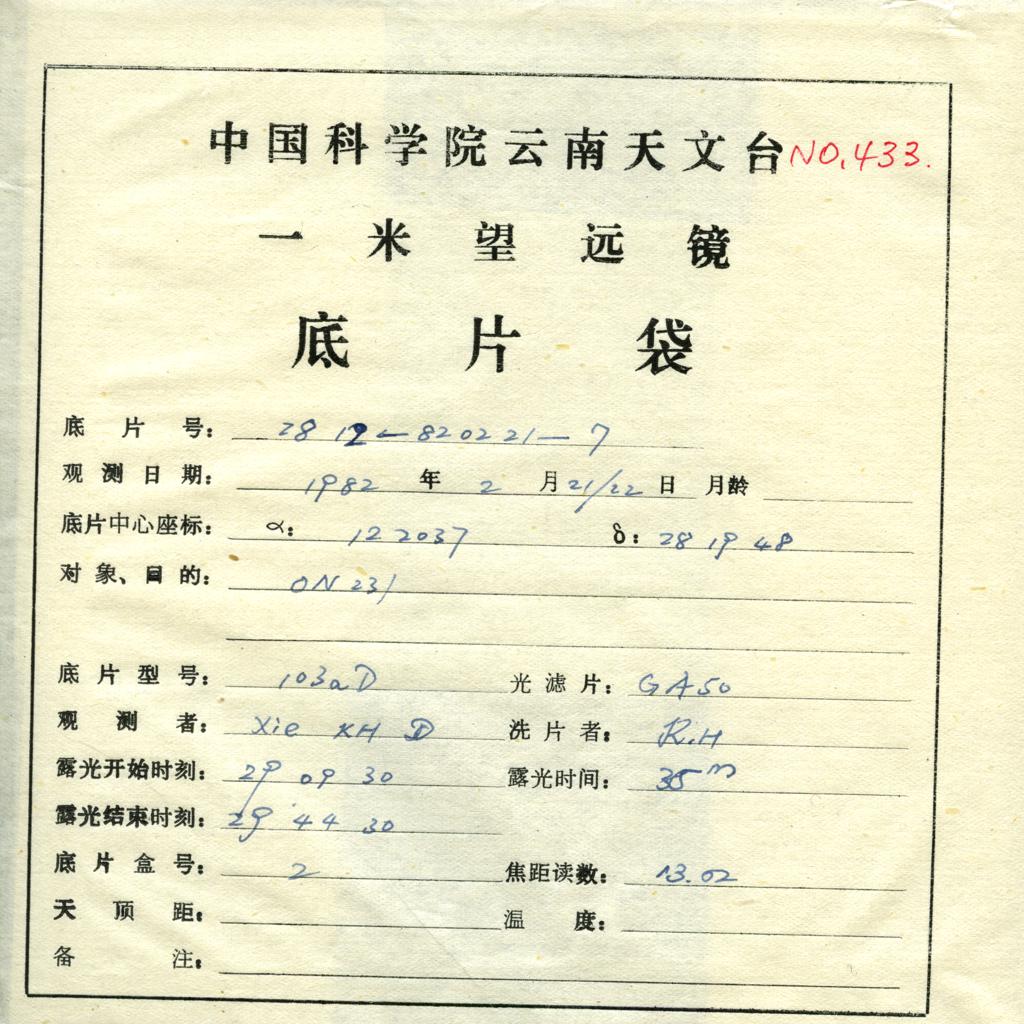 中国科学院云南天文台 NO.433.
一米望远镜
底片袋
底片号: 2812-820221-7
观测日期: 1982年2月21/22日 月龄
底片中心座标: α: 12 2037 δ: 28 19 48
对象、目的: ON 231
底片型号: 103aD 光滤片: GA50
观测者: Xie KH 洗片者: K.H
露光开始时刻: 29 09 30 露光时间: 35m
露光结束时刻: 29 44 30
底片盒号: 2 焦距读数: 13.02
天顶距: 温度:
备注: